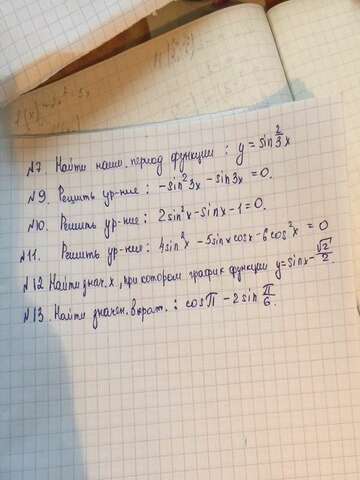 N7. Найти наим. период функции : y = sin 2/3 x
N9. Решить ур-ние : -sin²3x - sin3x = 0.
N10. Решить ур-ние : 2sin²x - sinx - 1 = 0.
N11. Решить ур-ние : 4sin²x - 5sinx cosx - 6cos²x = 0
N12 Найти знач. x, при котором график функции y = sinx - √2/2.
N13. Найти значен. выраж. : cosπ - 2sin π/6.